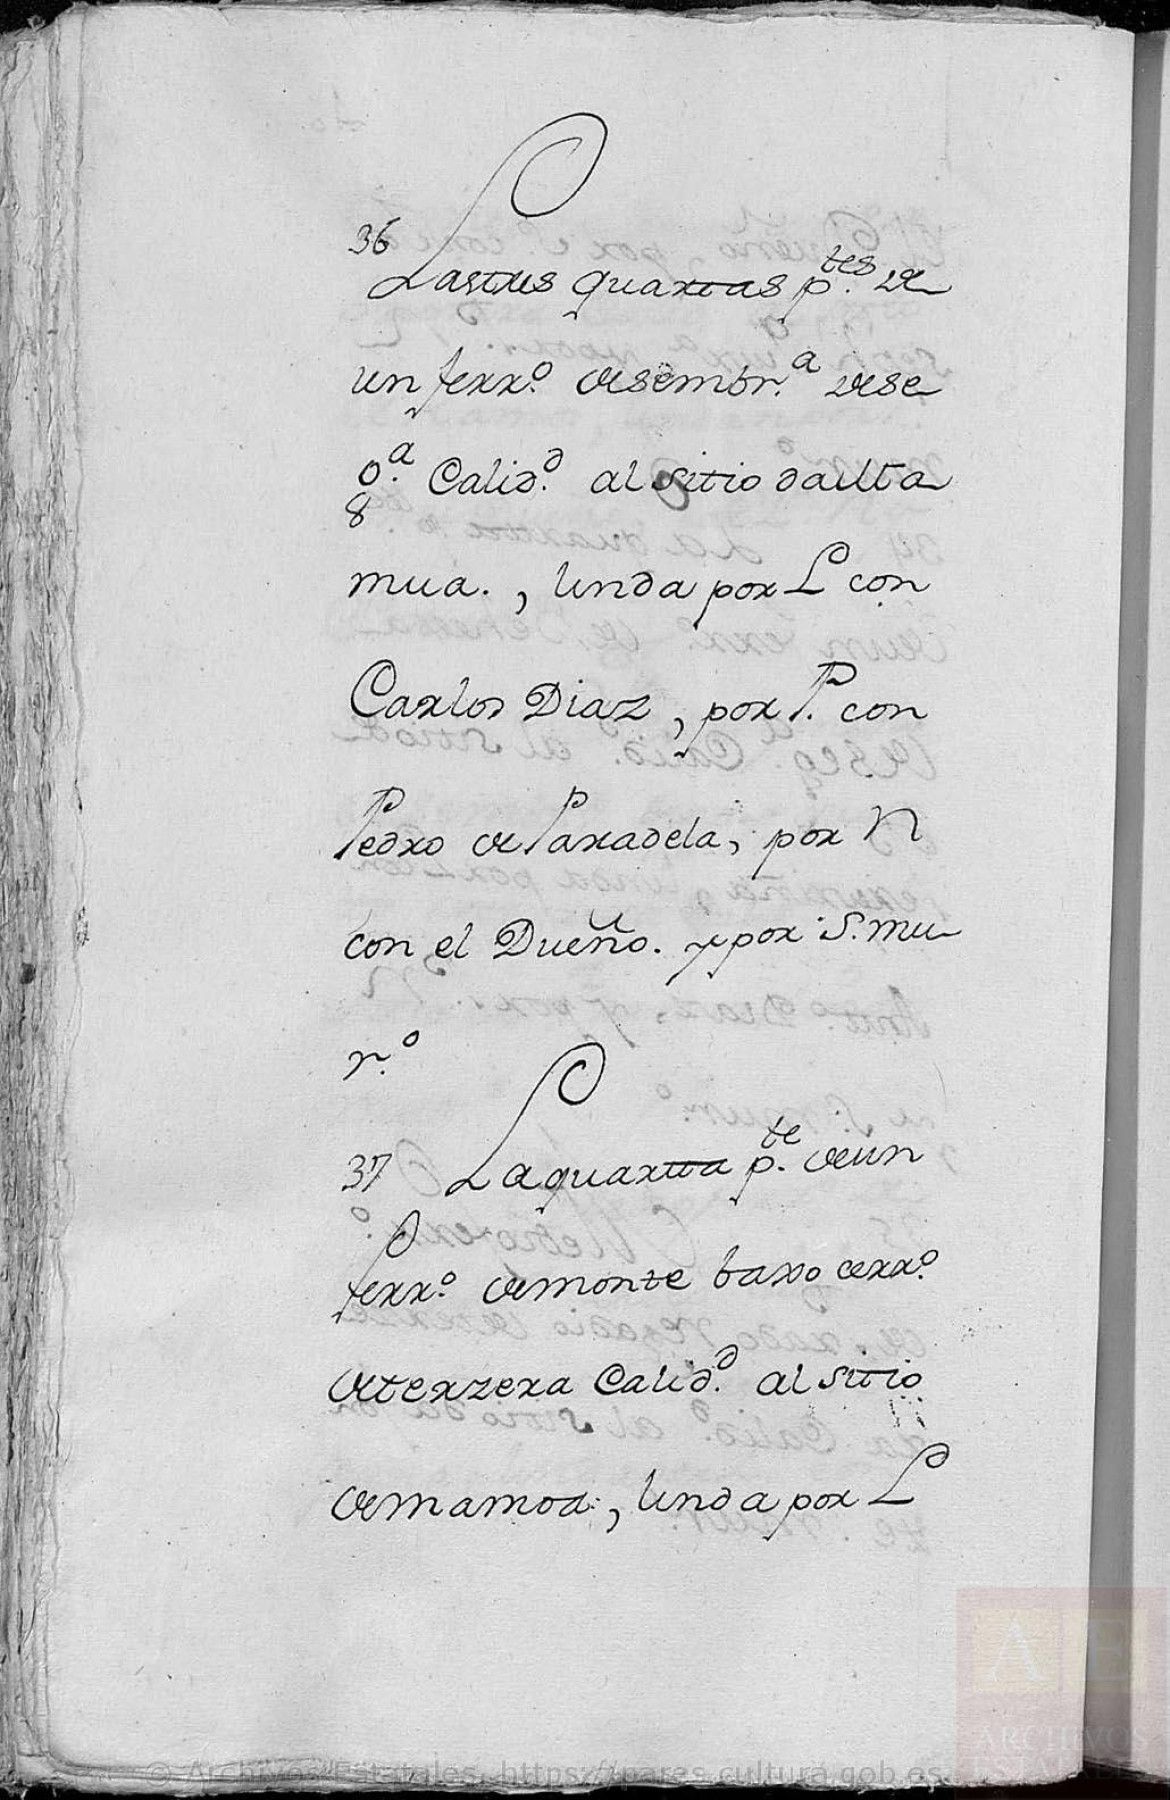 36
Las tres quartas p.tes de
un ferr.o de sembr.a de se
g.a Calid.d al sitio da Ulta
mua., linda por L con
Carlos Diaz, por P. con
Pedro de Paradela, por N
con el Dueño. y por S. mu
r.o
37 La quarta p.te de un
ferr.o de monte baxo cerr.o
de terzera Calid.d al sitio
de mamoa:, linda por L
© Archivos Estatales, https://pares.cultura.gob.es
AE
ARCHIVOS
ESTATALES